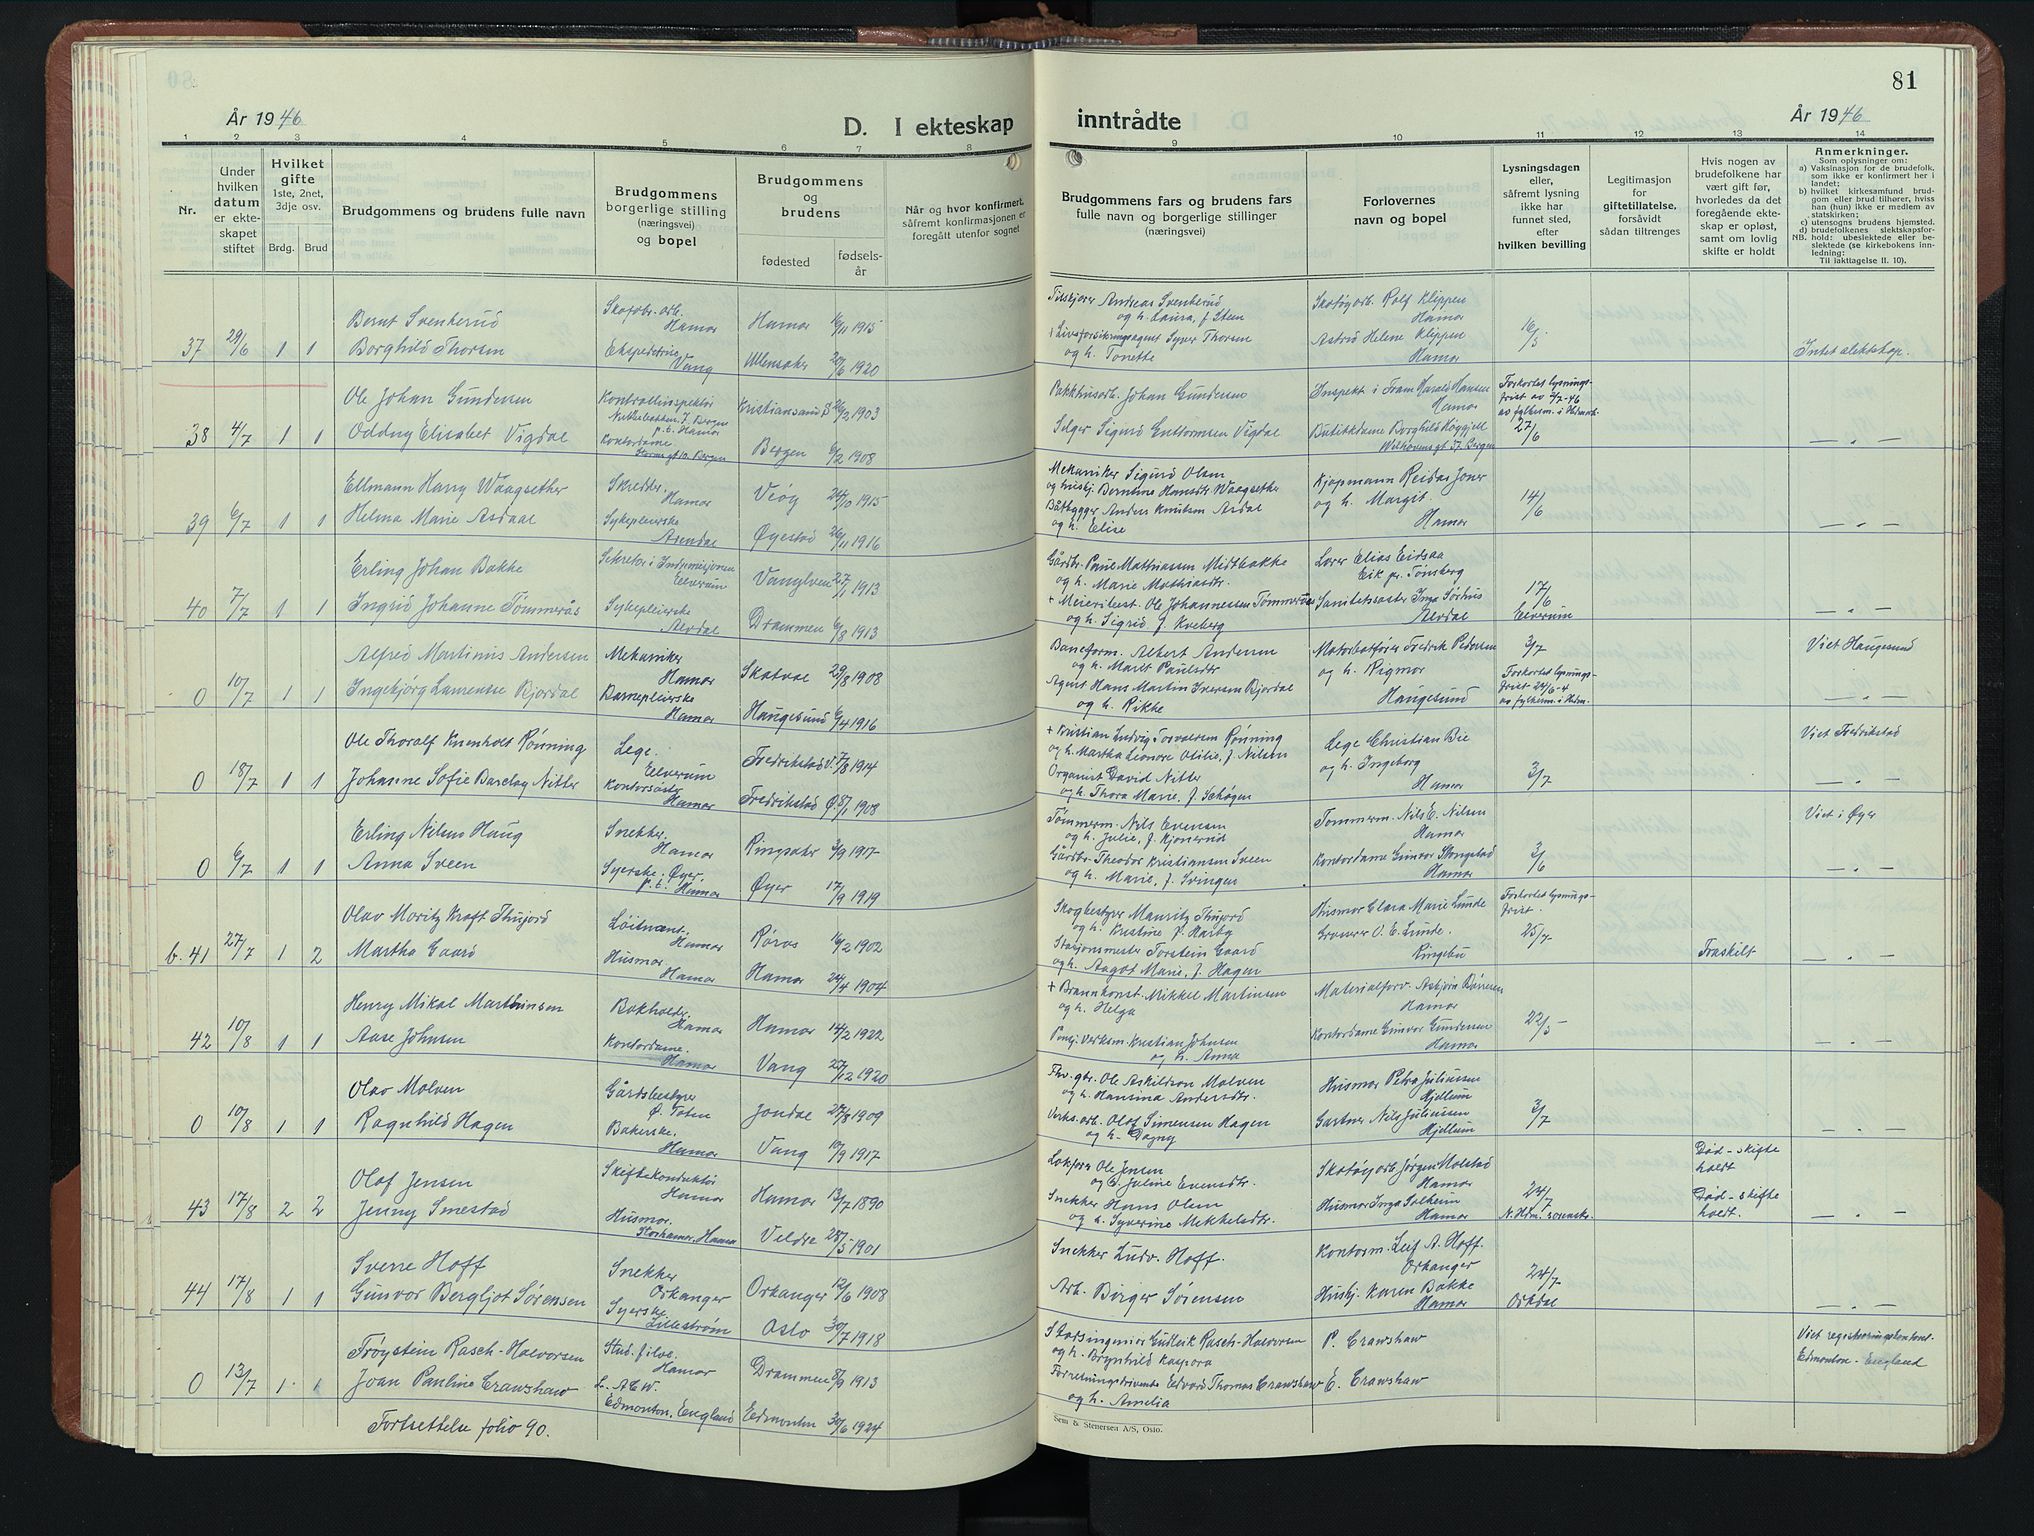 81
År 1946
D. I ekteskap inntrådte
År 1946
1 2 3 4 5 6 7 8 9 10 11 12 13 14
Nr.
Under hvilken datum er ekteskapet stiftet
Hvilket gifte
1ste, 2net, 3dje osv.
Brdg. Brud
Brudgommens og brudens fulle navn
Brudgommens borgerlige stilling (næringsvei) og bopel
Brudgommens og brudens
fødested
fødselsår
Når og hvor konfirmert, såfremt konfirmasjonen er foregått utenfor sognet
Brudgommens fars og brudens fars fulle navn og borgerlige stillinger (næringsvei)
Forlovernes navn og bopel
Lysningsdagen eller, såfremt lysning ikke har funnet sted, efter hvilken bevilling
Legitimasjon for giftetillatelse, forsåvidt sådan tiltrenges
Hvis nogen av brudefolkene har vært gift før, hvorledes da det foregående ekteskap er opløst, samt om lovlig skifte er holdt
Anmerkninger.
Som oplysninger om:
a) Vaksinasjon for de brudefolk, som ikke er konfirmert her i landet;
b) hvilket kirkesamfund brudgom eller brud tilhører, hviss han (hun) ikke er medlem av statskirken;
c) utensogns brudens hjemsted.
d) brudefolkenes slektskapsforhold: ubeslektede eller beslektede (se kirkebokens innledning:
NB.
Til iakttagelse II. 10).
37 29/6 1 1
Bernt Svenkerud
Borghild Thorsen
Skofabr. arb. Hamar
Ekspeditrise Vang
Hamar 16/11 1915
Ullensaker 20/6 1920
Andreas Svenkerud
og h. Laura, f. Steen
Livsforsikringsagent Syver Thorsen
og h. Tonette
Skotøyarb. Rolf Klippen
Hamar
Astrid Helene Klippen
Hamar
16/5
Intet slektskap.
38 4/7 1 1
Ole Johan Gundersen
Oddny Elisabet Vigdal
Kontrollinspektør
p.t. Hamar
Kontordame
Bergen
Kristiansand S 26/2 1903
Bergen 6/2 1908
Pakkhusarb. Johan Gundersen
Selger Sigurd Guttormsen Vigdal
Inspekt. i Fram Harald Hansen
Hamar
Butikkdame Borghild
Bergen
Forkortet lysningsfrist av 2/7-46
av fylkesm. i Hedmark
27/6
— " —
39 6/7 1 1
Ellmann Harry Waagsether
Helma Marie Asdal
Skredder. Hamar
Sykepleierske Arendal
Veøy 24/10 1915
Øyestad 26/11 1916
Mekaniker Sigurd Olsen
og hustr. Berntine Hansdtr Waagsether
Båtbygger Anders Knutsen Asdal
og h. Elise
Kjøpmann Reidar Joner
og h. Margit.
Hamar
14/6
— " —
40 7/7 1 1
Erling Johan Bakke
Ingrid Johanne Tømmerås
Sekretær i Indremisjonen
Elverum
Sykepleierske
Alvdal
Vanylven 27/1 1913
Drammen 6/8 1913
Gårdbr. Paul Mathiassen Midtbakke
og h. Marie Mathiasdtr.
+ Meieribest. Ole Johannessen Tømmerås
og h. Sigrid f. Kveberg
Lærer Elias Eidsaa
Eik pr. Tønsberg
Sanitetssøster Inga Sørhus
Alvdal
17/6
Elverum
— " —
0 10/7 1 1
Alfred Martinus Andersen
Ingebjørg Laurense Bjordal
Mekaniker
Hamar
Barnepleierske
Hamar
Skatval 29/8 1908
Haugesund 6/4 1916
Baneform. Albert Andersen
og h. Marit Paulsdtr
Agent Hans Martin Iversen Bjordal
og h. Rikke
Motorbåtfører Fredrik Pedersen
og h. Rigmor
Haugesund
3/7
Forkortet lysningsfrist 24/6-4
av fylkesm. i Hedm.
Viet Haugesund
— " —
0 18/7 1 1
Ole Thoralf Kumholt Rønning
Johanne Sofie Barclay Nitter
Lege.
Elverum
Kontorsøster
Hamar
Fredrikstad V. 7/8 1914
Fredrikstad Ø. 5/1 1908
+ Kristian Ludvig Torvaldsen Rønning
og h. Martha Leonore Otilie, f. Nilsen
Organist David Nitter
og h. Thora Marie, f. Schøgen
Lege Christian Bie
og h. Ingeborg
Hamar
3/7
Viet Fredrikstad
— " —
0 6/7 1 1
Erling Nilsen Haug
Anna Sveen
Snekker
Hamar
Syerske, Øyer.
p.t. Hamar
Ringsaker 3/9 1917
Øyer 17/9 1919
Tømmerm. Nils Evensen
og h. Julie, f. Kjønerud
Gårdbr. Theodor Kristiansen Sveen
og h. Marie, f. Svingen
Tømmerm. Nils E. Nilsen
Hamar
Kontordame Gunvor Stongstad
Hamar
3/6
Viet i Øyer
— " —
b. 41 27/7 1 2
Olav Moritz Kraft Thujord
Martha Gaard
Løitnant.
Hamar
Husmor.
Hamar
Røros 16/2 1902
Hamar 24/4 1904
Skogbestyrer Mauritz Thujord
og h. Kristine f. Harby
Stasjonsmester Torstein Gaard
og h. Aagot Marie, f. Hagen
Husmor Clara Marie Lunde
Grosserer O. E. Lunde.
Ringebu
Forkortet lysningsfrist.
25/7
Fraskilt
— " —
42 10/8 1 1
Henry Mikal Marthinsen
Aase Johnsen
Bokholder.
Hamar
Kontordame.
Hamar
Hamar 14/2 1922
Vang 27/12 1920
+ Brannkonst. Mikkel Martinsen
og h. Helga
Kristian Johnsen
og h. Anna
Materialforv. Asbjørn Børresen
Hamar
Kontordame Gunvor Gundersen
Hamar
22/5
— " —
0 10/8 1 1
Olav Molven
Ragnhild Hagen
Gårdsbestyrer
Ø. Toten
Bakerske.
Hamar
Jondal 27/8 1909
Vang 10/9 1917
Fhv. gbr. Ole Askildson Molven
og h. Hansina Andersdtr.
Verks. arb. Olaf Simensen Hagen
og h. Dagny
Husmor Petra Juliussen
Hjellum
Gartner Nils Juliussen
Hjellum
3/7
— " —
43 17/8 2 2
Olaf Jensen
Jenny Smestad
Skiftekonduktør
Hamar
Husmor.
Storhamar, Hamar
Hamar 13/7 1890
Veldre 28/5 1901
Lokfører Ole Jensen
og h. Juline Evensdtr.
Snekker Hans Olsen
og h. Syverine Mikkelsdtr.
Skotøyarb. Jørgen Molstad
Hamar
Husmor Inga Solheim
Hamar
24/7
N. Hdm. sorenskr.
Død - skifte holdt
Død - skifte holdt.
— " —
44 17/8 1 1
Sverre Hoff
Gunvor Bergljot Sørensen
Snekker
Orkanger
Syerske
Lillestrøm
Orkanger 12/6 1908
Oslo 30/7 1918
Snekker Ludv. Hoff.
Arb. Birger Sørensen
Kontorm. Leif A. Hoff.
Orkanger
Hustr. Karen Bakke
Hamar
24/7
Orkdal
— " —
0 13/7 1 1
Frøystein Rasch-Halvorsen
Joan Pauline Crawshaw
Stud. filol.
Hamar
Edmonton, England
Drammen 8/9 1913
Edmonton 30/6 1924
Statsingeniør Gutleik Rasch-Halvorsen
og h. Brynhild Kaspora
Forretningsdrivende Edvard Thomas Crawshaw
og h. Amelia
P. Crawshaw
E. Crawshaw
Viet registreringskontoret
Edmonton - England
Fortsettelse folio 90.
Sem & Stenersen A/S, Oslo.